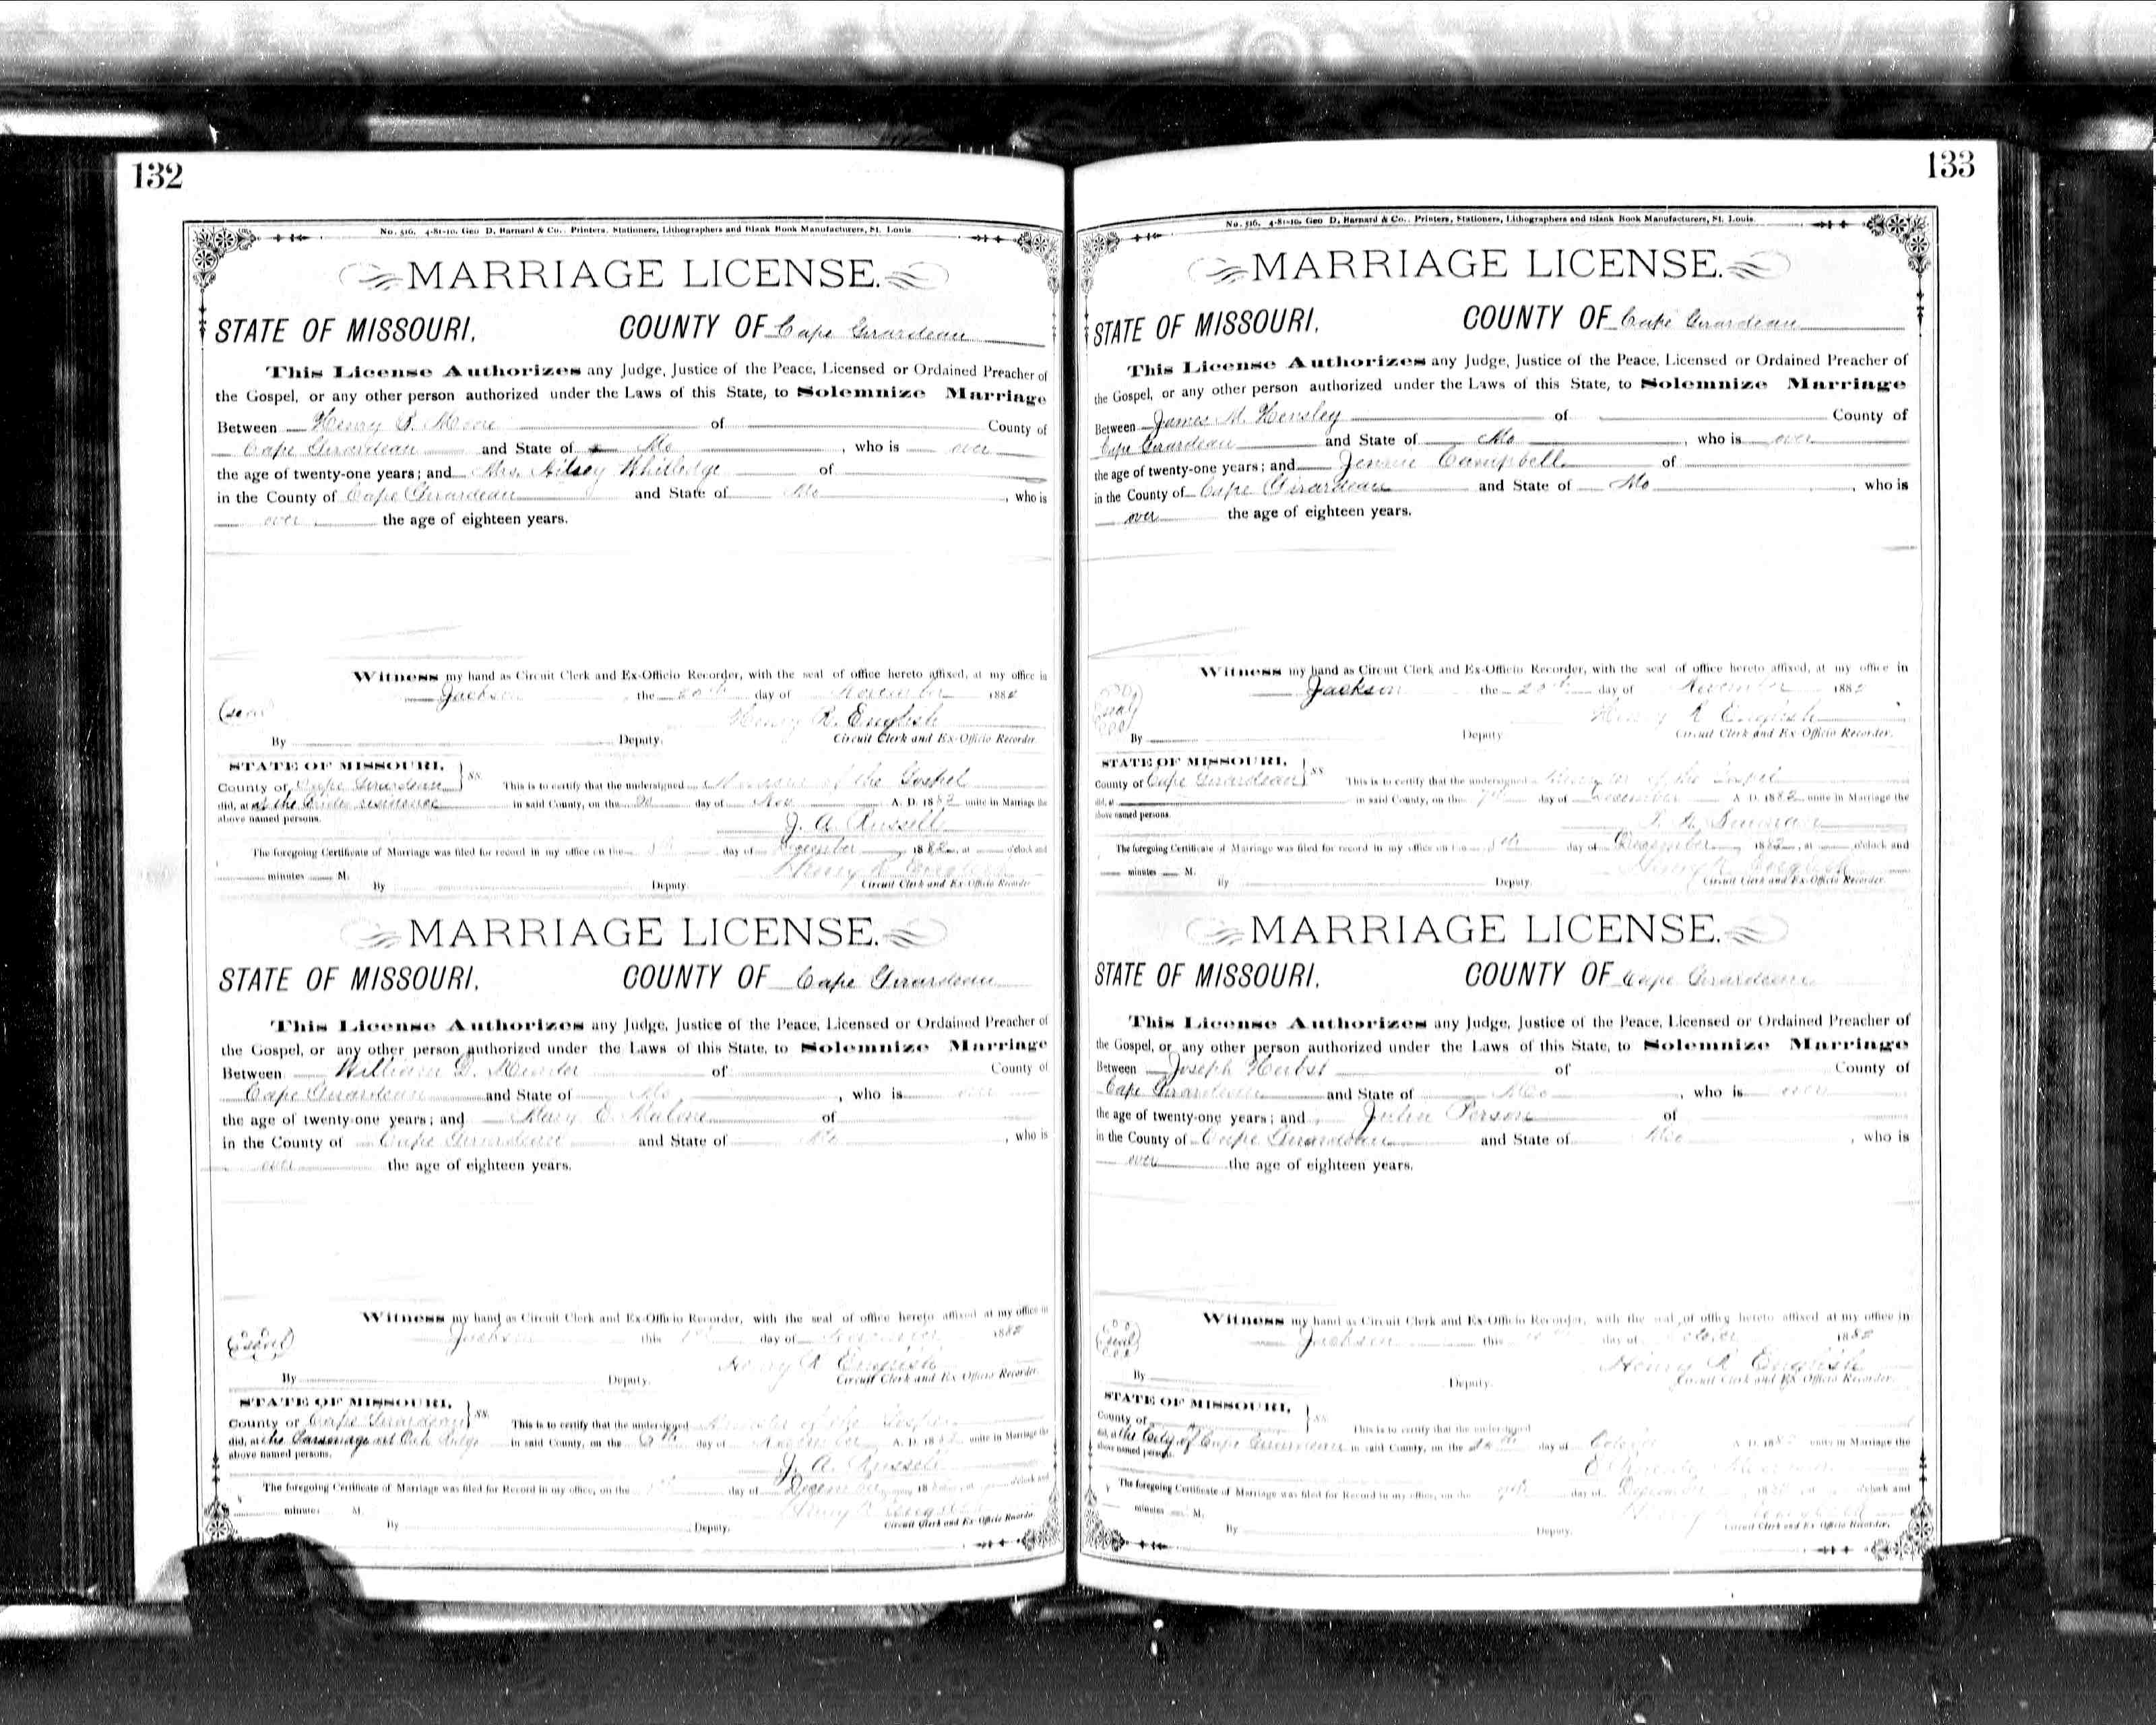 132
No. 516. 4-81-10. Geo D. Barnard & Co., Printers, Stationers, Lithographers and Blank Book Manufacturers, St. Louis
MARRIAGE LICENSE.
STATE OF MISSOURI, COUNTY OF Cape Girardeau
This License Authorizes any Judge, Justice of the Peace, Licensed or Ordained Preacher of
the Gospel, or any other person authorized under the Laws of this State, to Solemnize Marriage
Between Henry Moore of County of
Cape Girardeau and State of Mo , who is over
the age of twenty-one years; and Mrs. Whitledge of
in the County of Cape Girardeau and State of Mo , who is
over the age of eighteen years.
Witness my hand as Circuit Clerk and Ex-Officio Recorder, with the seal of office hereto affixed, at my office in
Jackson the 20th day of November 1882
(seal) Henry R. English
By Deputy. Circuit Clerk and Ex-Officio Recorder.
STATE OF MISSOURI, ss.
County of Cape Girardeau This is to certify that the undersigned of the Gospel
did, at at the residence in said County, on the 20 day of Nov A. D. 1882 unite in Marriage the
above named persons.
J. A. Russell
The foregoing Certificate of Marriage was filed for record in my office on the day of December 1882, at o'clock and
minutes M. Henry R. English
By Deputy. Circuit Clerk and Ex-Officio Recorder
MARRIAGE LICENSE.
STATE OF MISSOURI, COUNTY OF Cape Girardeau
This License Authorizes any Judge, Justice of the Peace, Licensed or Ordained Preacher of
the Gospel, or any other person authorized under the Laws of this State, to Solemnize Marriage
Between William D. of County of
Cape Girardeau and State of Mo , who is over
the age of twenty-one years; and Mary E. Malone of
in the County of Cape Girardeau and State of Mo , who is
over the age of eighteen years.
Witness my hand as Circuit Clerk and Ex-Officio Recorder, with the seal of office hereto affixed at my office in
Jackson this 1st day of November 1882
(seal) Henry R English
By Deputy. Circuit Clerk and Ex Officio Recorder.
STATE OF MISSOURI, ss.
County of Cape Girardeau This is to certify that the undersigned Minister of the Gospel
did, at the Parsonage at Oak Ridge in said County, on the day of November A. D. 1882 unite in Marriage the
above named persons.
J. A. Russell
The foregoing Certificate of Marriage was filed for Record in my office, on the day of December 188 at o'clock and
minutes M. Henry R English
By Deputy. Circuit Clerk and Ex-Officio Recorder.
133
No. 516. 4-81-10. Geo D. Barnard & Co., Printers, Stationers, Lithographers and Blank Book Manufacturers, St. Louis
MARRIAGE LICENSE.
STATE OF MISSOURI, COUNTY OF Cape Girardeau
This License Authorizes any Judge, Justice of the Peace, Licensed or Ordained Preacher of
the Gospel, or any other person authorized under the Laws of this State, to Solemnize Marriage
Between James M. Hensley of County of
Cape Girardeau and State of Mo , who is over
the age of twenty-one years; and Jennie Campbell of
in the County of Cape Girardeau and State of Mo , who is
over the age of eighteen years.
Witness my hand as Circuit Clerk and Ex-Officio Recorder, with the seal of office hereto affixed, at my office in
Jackson the 20th day of November 1882
(seal) Henry R English
By Deputy Circuit Clerk and Ex Officio Recorder.
STATE OF MISSOURI, ss
County of Cape Girardeau This is to certify that the undersigned of the Gospel
did, at in said County, on the 7th day of December A. D. 1882 unite in Marriage the
above named persons.
The foregoing Certificate of Marriage was filed for record in my office on the day of December 1882, at o'clock and
minutes M. Henry R. English
By Deputy. Circuit Clerk and Ex-Officio Recorder.
MARRIAGE LICENSE.
STATE OF MISSOURI, COUNTY OF Cape Girardeau
This License Authorizes any Judge, Justice of the Peace, Licensed or Ordained Preacher of
the Gospel, or any other person authorized under the Laws of this State, to Solemnize Marriage
Between Joseph Herbst of County of
Cape Girardeau and State of Mo , who is over
the age of twenty-one years; and Julia Person of
in the County of Cape Girardeau and State of Mo , who is
over the age of eighteen years.
Witness my hand as Circuit Clerk and Ex-Officio Recorder, with the seal of office hereto affixed at my office in
Jackson this day of October 1882
(seal) Henry R English
By Deputy. Circuit Clerk and Ex Officio Recorder.
STATE OF MISSOURI, ss
County of This is to certify that the undersigned
did, at the City of Cape Girardeau in said County, on the day of October A. D. 188 unite in Marriage the
above named persons.
The foregoing Certificate of Marriage was filed for Record in my office, on the day of December 188 at o'clock and
minutes M. Henry R English
By Deputy. Circuit Clerk and Ex Officio Recorder.